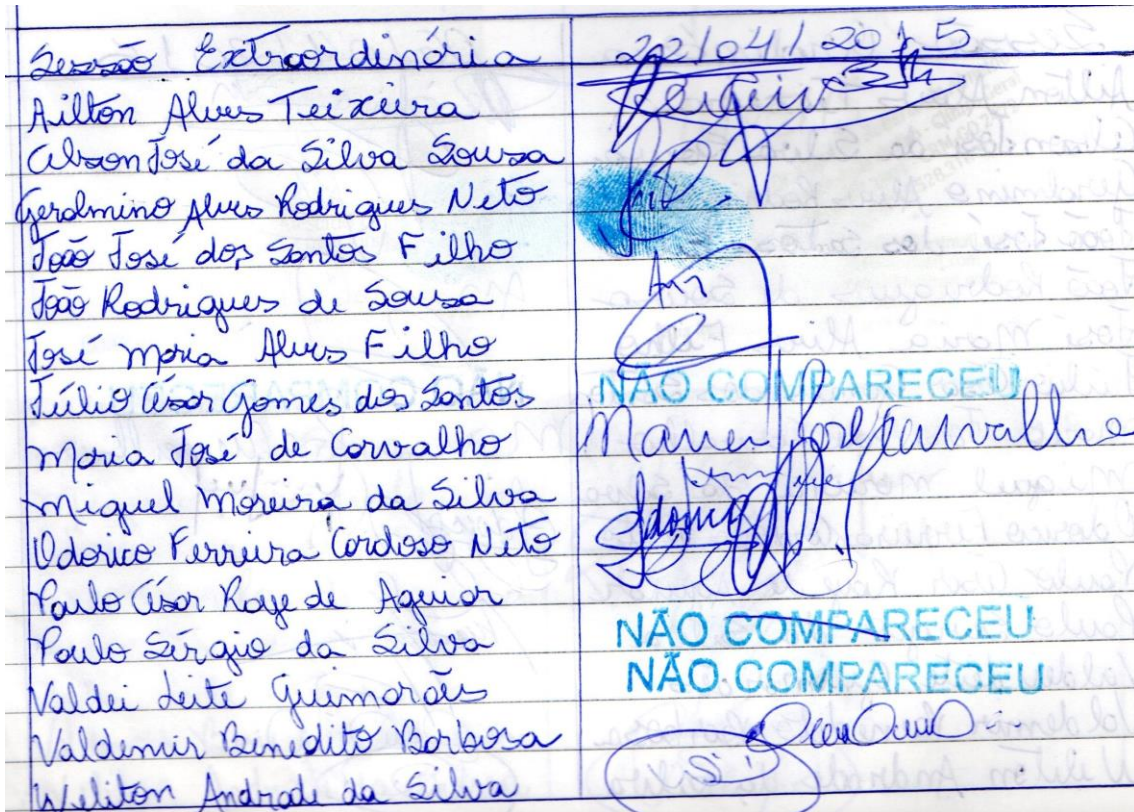 Sessão Extraordinária 22/04/2015
Ailton Alves Teixeira
Celson José da Silva Sousa
Geralmino Alves Rodrigues Neto
João José dos Santos Filho
João Rodrigues de Sousa
José Maria Alves Filho
Júlio César Gomes dos Santos NÃO COMPARECEU
Maria José de Carvalho Maria José de Carvalho
Miguel Moreira da Silva
Odorico Ferreira Cardoso Neto
Paulo César Raye de Aguiar
Paulo Sérgio da Silva NÃO COMPARECEU
Valdei Leite Guimarães NÃO COMPARECEU
Valdemir Benedito Barbosa
Weliton Andrade da Silva